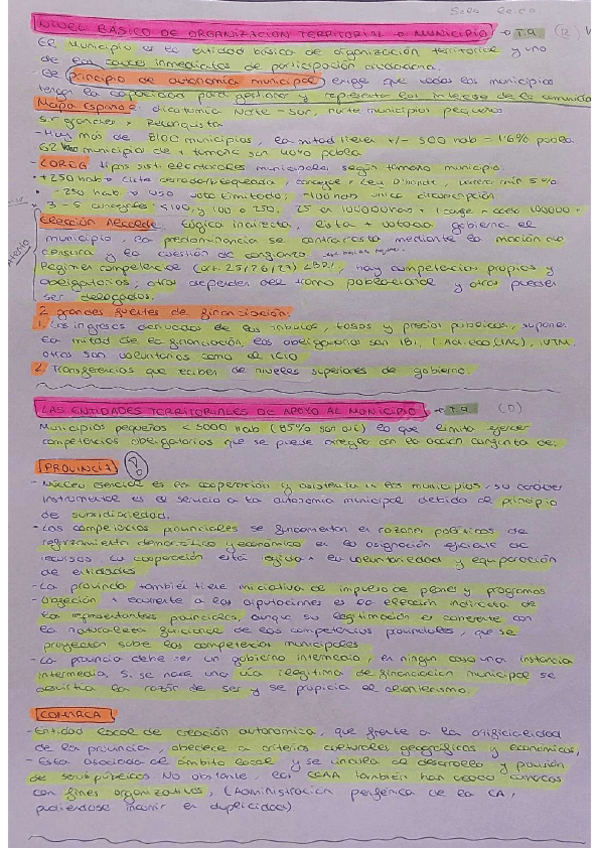 NIVEL BÁSICO DE ORGANIZACIÓN TERRITORIAL o MUNICIPIO → T.9 (R)
El municipio es la entidad básica de organización territorial y uno
de los cauces inmediatos de participación ciudadana.
- El principio de autonomía municipal exige que todos los municipios
tengan la capacidad para gestionar y representar los intereses de la comunidad
Mapa español: dicotomía Norte - Sur, norte municipios pequeños
Sur grandes Reconquista
- Hay más de 8100 municipios, la mitad tienen +/- 500 hab = 1'6% pobla
62 municipios de + tamaño son 40% pobla
- LOREG tipos sist. electorales municipales según tamaño municipio.
• +250 hab → lista cerrada/bloqueada, Ley D'hondt, barrera min 5%
• - 250 hab voto limitado; -100 hab única circunscripción
• 3 - 5 concejales <100, y 100 a 250, 25 en 100000 hab + 1 cada 100000 +
Elección Alcalde, lógica indirecta, lista + votada gobierna el
municipio, la predominancia se contrarresta mediante la moción de
censura y la cuestión de confianza
Régimen competencial (art. 25/26/27) LBRL, hay competencias propias y
obligatorias, otras dependen del tramo poblacional y otras pueden
ser delegadas.
2 grandes fuentes de financiación:
1. Los ingresos derivados de los tributos, tasas y precios públicos, supone
la mitad de la financiación, los obligatorios son IBI, (IAE), IVTM.
otros son voluntarios como el ICIO
2. Transferencias que reciben de niveles superiores de gobierno.
LAS ENTIDADES TERRITORIALES DE APOYO AL MUNICIPIO → T.9 (D)
Municipios pequeños < 5000 hab (85% son así) lo que limita ejercer
competencias obligatorias que se puede arreglar con la acción conjunta de.
PROVINCIA
- Núcleo esencial es la cooperación y asistencia a los municipios, su carácter
instrumental es al servicio a la autonomía municipal debido al principio
de subsidiariedad.
- Las competencias provinciales se fundamentan en razones políticas de
reforzamiento democrático y económico en la asignación eficiente de
recursos. Su cooperación está regida + en voluntariedad y equiparación
de entidades
- La provincia también tiene iniciativa de impulso de planes y programas
- Objeción + recurrente a las diputaciones es la elección indirecta de
los representantes provinciales, aunque su legitimación es coherente con
la naturaleza funcional de las competencias provinciales, que se
proyectan sobre las competencias municipales
- La provincia debe ser un gobierno intermedio, en ningún caso una instancia
intermedia, si se hace una vía ilegítima de financiación municipal se
desvirtúa la razón de ser y se propicia el clientelismo.
COMARCA
- Entidad local de creación autonómica, que frente a la artificialidad
de la provincia, obedece a criterios culturales geográficos y económicos,
- Está asociada al ámbito local y se vincula al desarrollo y provisión
de serv. públicos. No obstante, las CCAA también han creado comarcas
con fines organizativos, (Administración periférica de la CA,
pudiéndose incurrir en duplicidades)